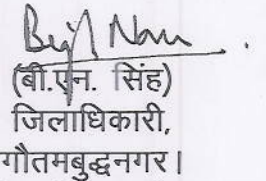 (बी.एन. सिंह)
जिलाधिकारी,
गौतमबुद्धनगर।